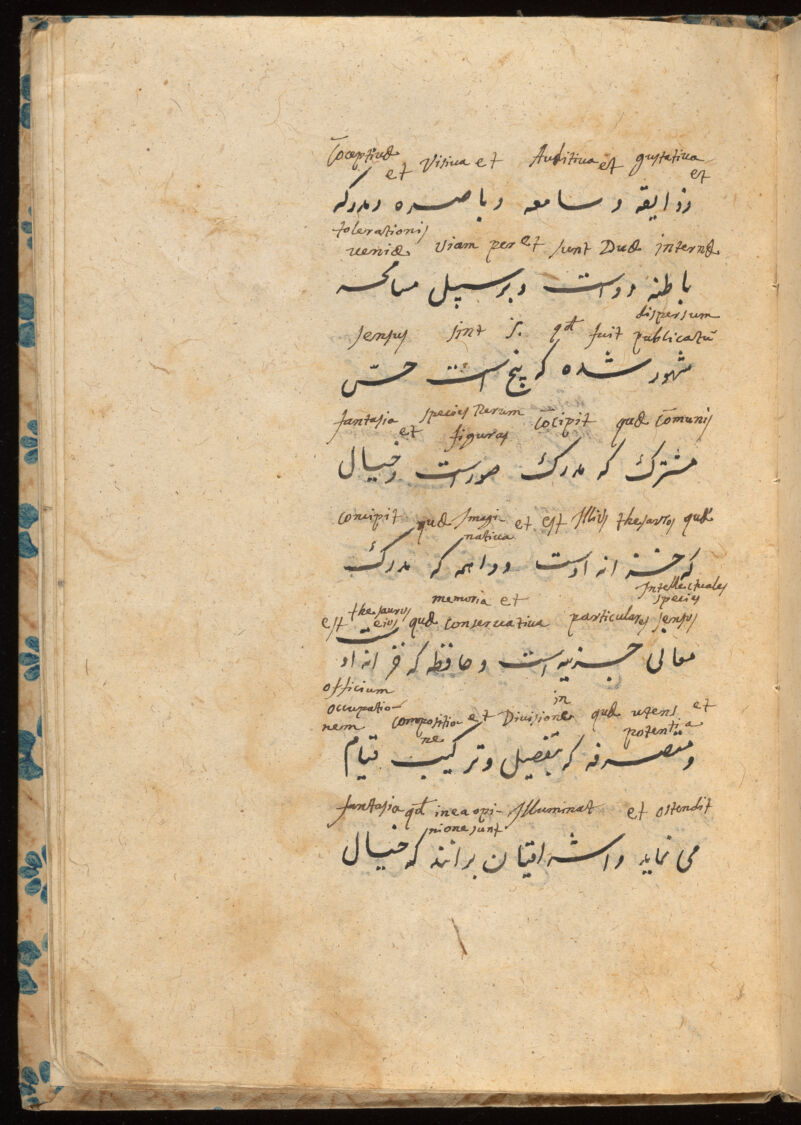 Cōceptiuæ et Visiua et Auditiua et gustatiua et
و ذایقه و سامعه و باصره و مدرکه
tolerationis ueniæ viam per et sunt Duæ internæ
باطنه دو است و بر سبیل مسامحه
sensus sint s. qd fuit dispersum publicatū
مشهور شده که پنج است حسّ
fantasia et species Rerum figuras cōcipit quæ cōmunis
مشترک که مدرک صور است و خیال
concipit quæ Imaginatiua et est Illius thesauros quæ
که خزانه اوست و واهمه که مدرک
est thesaurus eius quæ conseruatiua memoria et particulares Intellectuales species sensus
معانی جزییه است و حافظه که خزانه اوست
officium occupationem compositione et Divisione in quæ utens potentia et
و متصرفه که بتفصیل و ترکیب قیام
fantasia qd in ea opinione sunt Illuminat et ostendit
می نماید و اشراقیان برانند که خیال